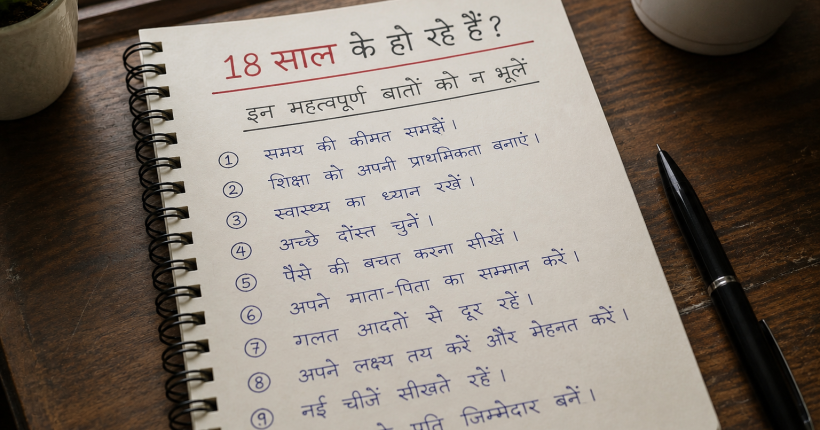 18 साल के हो रहे हैं?
इन महत्वपूर्ण बातों को न भूलें
① समय की कीमत समझें।
② शिक्षा को अपनी प्राथमिकता बनाएं।
③ स्वास्थ्य का ध्यान रखें।
④ अच्छे दोंस्त चुनें।
⑤ पैसे की बचत करना सीखें।
⑥ अपने माता-पिता का सम्मान करें।
⑦ गलत आदतों से दूर रहें।
⑧ अपने लक्ष्य तय करें और मेहनत करें।
⑨ नई चीजें सीखते रहें।
प्रति जिम्मेदार बनें।